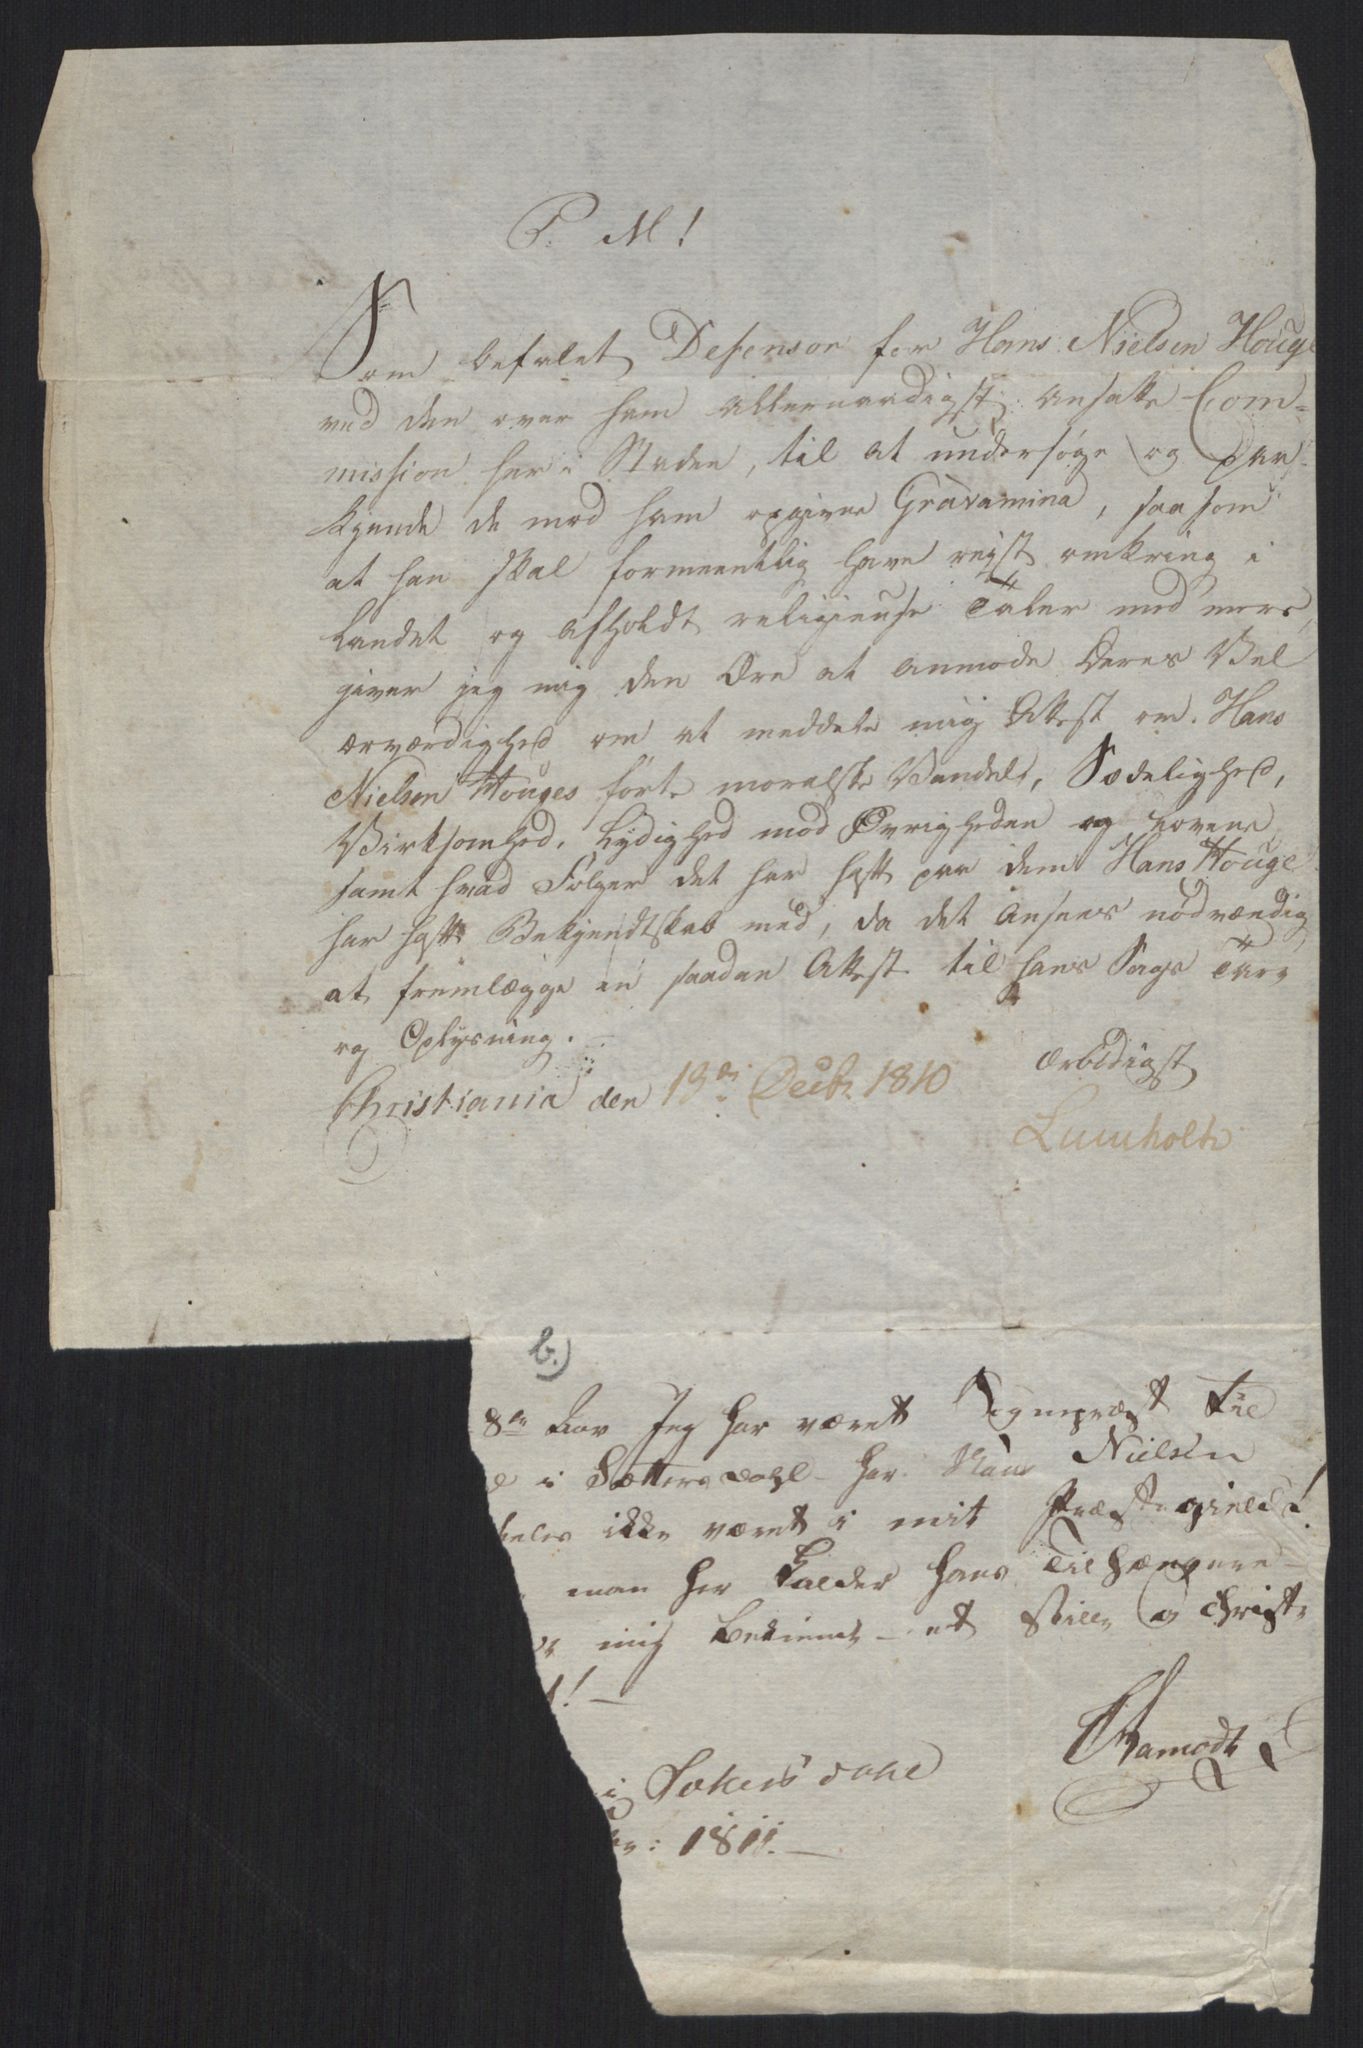 P. M!
Som befalet Defensor for Hans Nielsen Houge
ved den over ham allernaadigst ansatte Com=
mission her i Staden, til at undersøge og paa
kjende de mod ham opgivne Gravamina, saasom
at han skal formeentlig have reist omkring i
Landet og afholdt religieuse Taler med mere,
giver jeg mig den Ære at anmode Deres Vel
ærværdighed om at meddele mig Attest om Hans
Nielsen Houges førte moralske Vandel, Sædelighed,
Virksomhed, Lydighed mod Øvrigheden og Lovene
samt hvad Følger det har haft paa dem Hans Houge
har haft Bekjendtskab med, da det ansees nødvendig
at fremlægge en saadan Attest til hans Sags Tarv
og Oplysning.
Christiania den 13de Decbr. 1810
ærbødigst
Lumholtz
b.)
8te Aar Jeg har været Sognepræst til
i Sættersdahl har Hans Nielsen
ikke været i mit Præstegield!
man her kalder hans Tilhængere
mig bekiendt et stille og christe
!
i Sætersdahl
1811.
Aamodt